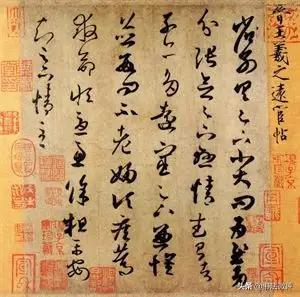 晉王羲之遠宦帖
省別具足下小大問為慰多
分張念足下懸情武昌諸
子亦多遠宦足下兼懷
並數問不老婦頃疾篤
救命恒憂慮餘粗平安
知足下情至
头条